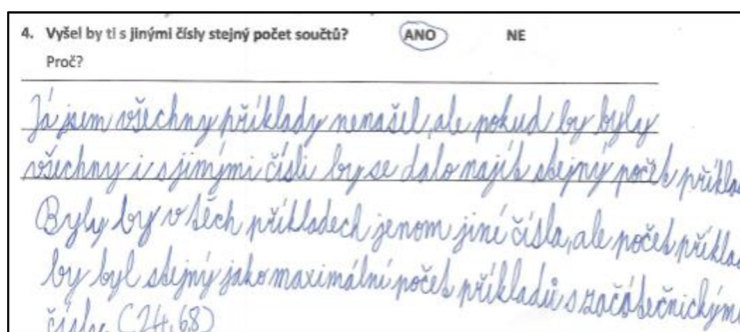 4. Vyšel by ti s jinými čísly stejný počet součtů? ANO NE
Proč?
Já jsem všechny příklady nenašel, ale pokud by byly
všechny i s jinými čísli by se dalo najít stejný počet příkla
Byly by v těch příkladech jenom jiné čísla, ale počet příkla
by byl stejný jako maximální počet příkladů s začátečnickými
čísly (24,68)